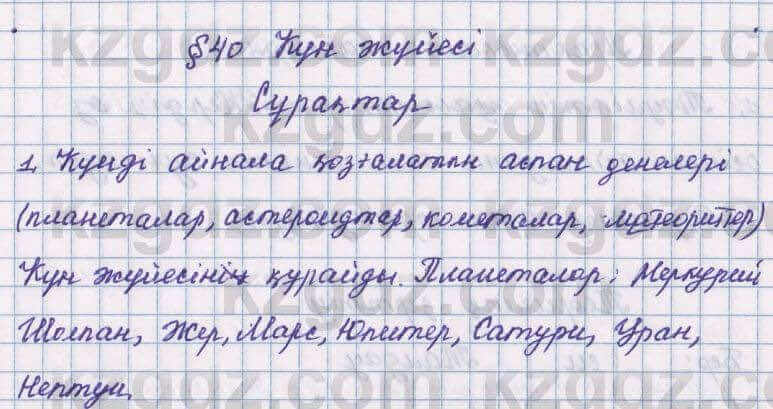 §40 Күн жүйесі
Сұрақтар
1. Күнді айнала қозғалатын аспан денелері
(планеталар, астероидтер, кометалар, метеориттер)
Күн жүйесінің құрайды. Планеталар: Меркурий
Шолпан, Жер, Марс, Юпитер, Сатурн, Уран,
Нептун.
kzgdz.com